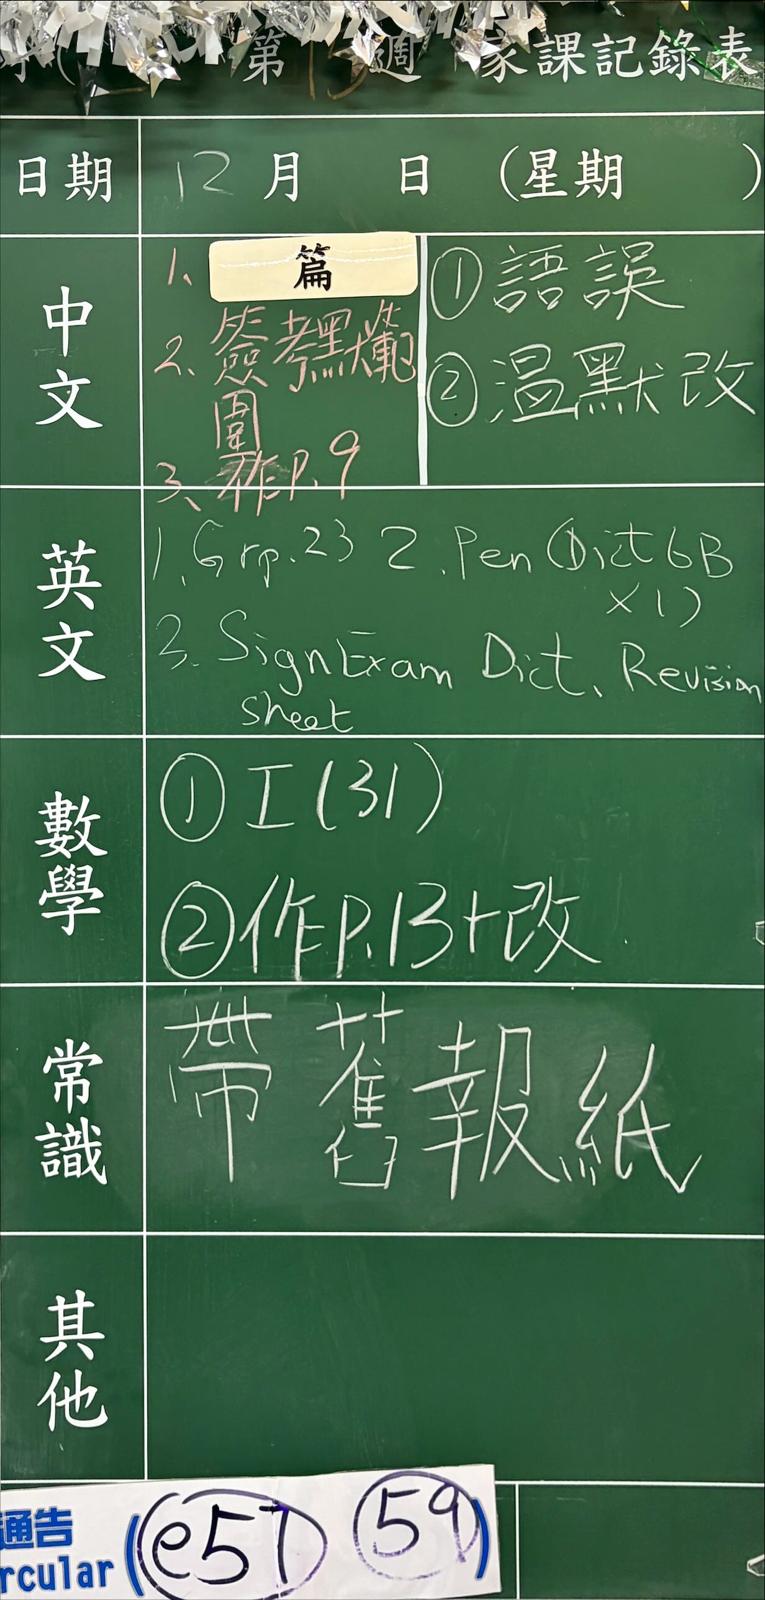 第 週 家課記錄表
日期 12月 日 (星期 )
中文
1. 篇
2. 簽考默範
圍
3. 作P.9
① 語誤
② 溫默改
英文
1. Grp.23 2. Pen (Dict 6B
×1)
3. Sign Exam Dict. Revision
sheet
數學
① 工(31)
② 作P.13+改
常識
帶舊報紙
其他
通告 (e57 59)
rcular